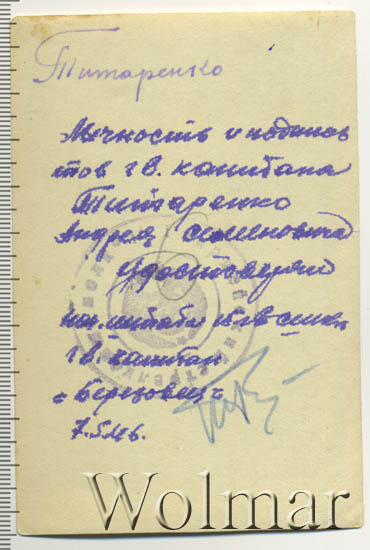 Титаренко
Личность и подпись
тов гв. капитана
Титаренко
Андрея Семеновича
Удостоверяю
нач. штаба
гв. капитан
Березовец
7.5.46.
Wolmar